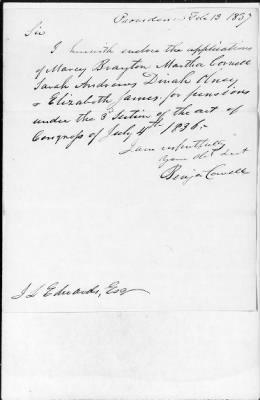 Providence Feb 13 1837
Sir
I herewith enclose the applications
of Marcy Brayton Martha Cornell
Sarah Andrews Dinah Olney
& Elizabeth James, for pensions
under the 3d Section of the act of
Congress of July 4th 1836.
I am respectfully
Your obt Sert
Benja Cowell
J L Edwards, Esqr